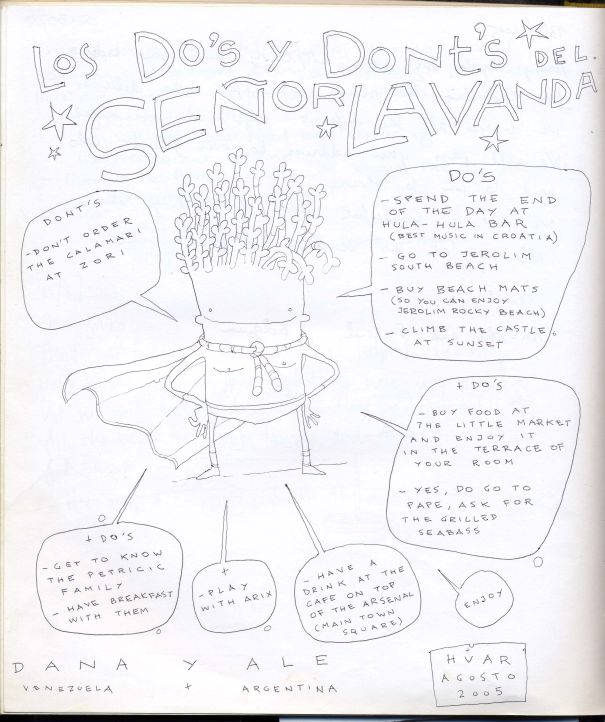 LOS DO'S Y DONT'S DEL
SEÑOR LAVANDA
DONT'S
-DON'T ORDER
THE CALAMARI
AT ZORI
DO'S
-SPEND THE END
OF THE DAY AT
HULA-HULA BAR
(BEST MUSIC IN CROATIA)
- GO TO JEROLIM
SOUTH BEACH
- BUY BEACH MATS
(SO YOU CAN ENJOY
JEROLIM ROCKY BEACH)
- CLIMB THE CASTLE
AT SUNSET
+ DO'S
- BUY FOOD AT
THE LITTLE MARKET
AND ENJOY IT
IN THE TERRACE OF
YOUR ROOM
- YES, DO GO TO
PAPE, ASK FOR
THE GRILLED
SEABASS
+ DO'S
- GET TO KNOW
THE PETRICIC
FAMILY
- HAVE BREAKFAST
WITH THEM
+
- PLAY
WITH ARIX
- HAVE A
DRINK AT THE
CAFE ON TOP
OF THE ARSENAL
(MAIN TOWN
SQUARE)
ENJOY
DANA Y ALE
VENEZUELA + ARGENTINA
HVAR
AGOSTO
2005